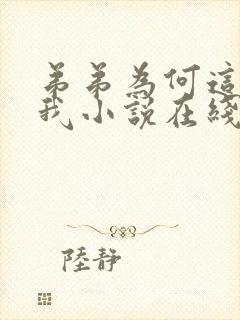 弟弟為何這
我小說在綫
陸靜